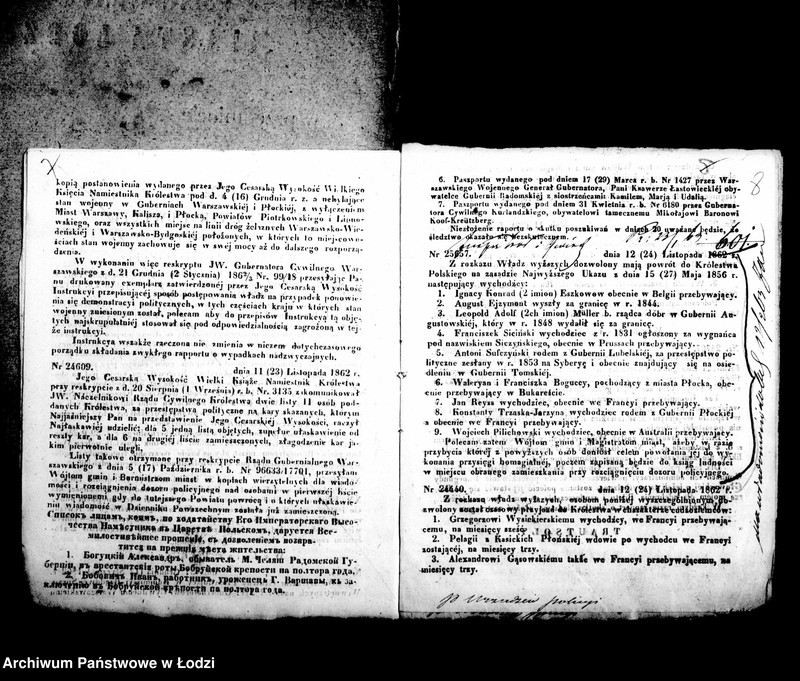 kopią postanowienia wydanego przez Jego Cesarską Wysokość Wielkiego
Księcia Namiestnika Królestwa pod d. 4 (16) Grudnia r. z. a uchylające
stan wojenny w Guberniach Warszawskiéj i Płockiéj, z wyłączeniem
Miast Warszawy, Kalisza, i Płocka, Powiatów Piotrkowskiego i
wskiego, oraz wszystkich miejsc na linii dróg żelaznych Warszawsko-Wie-
deńskiéj i Warszawsko-Bydgoskiéj położonych, w których to miejscowo-
ściach stan wojenny zachowuje się w swéj mocy aż do dalszego rozporzą-
dzenia.
W wykonaniu więc reskryptu JW. Gubernatora Cywilnego War-
szawskiego z d. 21 Grudnia (2 Stycznia) 1862/3 Nr. 99/18 przesyłając Pa-
nu drukowany exemplarz zatwierdzonéj przez Jego Cesarską Wysokość
Instrukcyi przepisującéj sposób postępowania władz na przypadek ponowie-
nia się demonstracyi politycznych, w tych częściach kraju w których stan
wojenny zniesionym został, polecam aby do przepisów Instrukcyą tą obję-
tych najskrupulatniéj stosował się pod odpowiedzialnością zagrożoną w tej-
że instrukcyi.
Instrukcya wszakże rzeczona nie zmienia w niczem dotychczasowego
porządku składania zwykłego rapportu o wypadkach nadzwyczajnych.
Nr 24609. dnia 11 (23) Listopada 1862 r.
Jego Cesarska Wysokość Wielki Książe Namiestnik Królestwa
przy reskrypcie z d. 20 Sierpnia (1 Września) r. b. Nr. 3135 zakomunikował
JW. Naczelnikowi Rządu Cywilnego Królestwa dwie listy 11 osób pod-
danych Królestwa, za przestępstwa polityczne na kary skazanych, którym
Najjaśniejszy Pan na przedstawienie Jego Cesarskiéj Wysokości, raczył
Najłaskawiéj udzielić; dla 5 jedną listą objętych, zupełne ułaskawienie od
reszty kar, a dla 6 na drugiéj liście zamieszczonych, złagodzenie kar ja-
kim pierwotnie ulegli.
Listy takowe otrzymane przy reskrypcie Rządu Gubernialnego War-
szawskiego z dnia 5 (17) Października r. b. Nr 96633/17701, przesyłam
Wójtom gmin i Burmistrzom miast w kopiach wierzytelnych dla wiado-
mości i rozciągnienia dozoru policyjnego nad osobami w pierwszéj liście
wymienionemi, gdy do tutejszego Powiatu powrócą i o których ułaskawie-
niu wiadomość w Dzienniku Powszechnym została już zamieszczoną.
Списокъ лицамъ, коимъ, по ходатайству Его Императорскаго Высо-
чества Намѣстника въ Царствѣ Польскомъ, даруется Все-
милостивѣйшее прощеніе, съ дозволеніемъ возвра-
тится на прежнія мѣста жительства:
1. Богуцкій Александръ, обыватель М. Радомской Гу-
берніи, въ арестантскія роты Бобруйской крѣпости на полтора года.
2. Бобовичъ Иванъ, работникъ, уроженецъ Г. Варшавы, къ за-
ключенію въ Бобруйской крѣпости на полтора года.
8
8
6. Paszportu wydanego pod dniem 17 (29) Marca r. b. Nr 1427 przez War-
szawskiego Wojennego Generał Gubernatora, Pani Ksawerze Łastowieckiéj oby-
watelce Gubernii Radomskiéj z siostrzeńcami Kamilem, Marją i Udalią.
7. Paszportu wydanego pod dniem 31 Kwietnia r. b. Nr 6180 przez Guberna-
tora Cywilnego Kurlandzkiego, obywatelowi tamecznemu Mikołajowi Baronowi
Koof-Kreützberg.
Niezłożenie raportu o skutku poszukiwań w dniach 20 uważane będzie, że
śledztwo okazało się bezskutecznem.
Nr 25657. dnia 12 (24) Listopada 1862 r.
Z rozkazu Władz wyższych dozwolony mają powrót do Królestwa
Polskiego na zasadzie Najwyższego Ukazu z dnia 15 (27) Maja 1856 r.
następujący wychodźcy:
1. Ignacy Konrad (2 imion) Eszkowow obecnie w Belgii przebywający.
2. August Ejzymont wyszły za granicę w r. 1844.
3. Leopold Adolf (2ch imion) Müller b. rządca dóbr w Gubernii Au-
gustowskiéj, który w r. 1848 wydalił się za granicę.
4. Franciszek Siciński wychodziec z r. 1831 ogłoszony za wygnańca
pod nazwiskiem Sieczyńskiego, obecnie w Prussach przebywający.
5. Antoni Sufczyński rodem z Gubernii Lubelskiéj, za przestępstwo po-
lityczne zesłany w r. 1853 na Syberyę i obecnie znajdujący się na osie-
dleniu w Gubernii Tomskiéj.
6. Waleryan i Franciszka Boguccy, pochodzący z miasta Płocka, obe-
cnie przebywający w Bukareście.
7. Jan Reyss wychodziec, obecnie we Francyi przebywający.
8. Konstanty Trzaska-Jarzyna wychodziec rodem z Gubernii Płockiéj
a obecnie we Francyi przebywający.
9. Wojciech Pilichowski wychodziec, obecnie w Australii przebywający.
Polecam zatém Wójtom gmin i Magistratom miast, ażeby w razie
przybycia któréj z powyższych osób doniósł celem powołania jéj do wy-
konania przysięgi homagialnéj, poczem zapisaną będzie do ksiąg ludności
w miejscu obranego zamieszkania przy rozciągnieniu dozoru policyjnego.
Nr 24440. dnia 12 (24) Listopada 1862 r.
Z rozkazu władz wyższych, osobom poniżéj wyszczególnionym do-
zwolony został czasowy przyjazd do Królestwa w charakterze cudzoziemców:
1. Grzegorzowi Wysiekierskiemu wychodźcy, we Francyi przebywają-
cemu, na miesięcy sześć.
2. Pelagii z Kasickich Płońskiéj wdowie po wychodcu we Francyi
zostającéj, na miesięcy trzy.
3. Alexandrowi Gąsowskiemu także we Francyi przebywającemu, na
miesięcy trzy.
Archiwum Państwowe w Łodzi